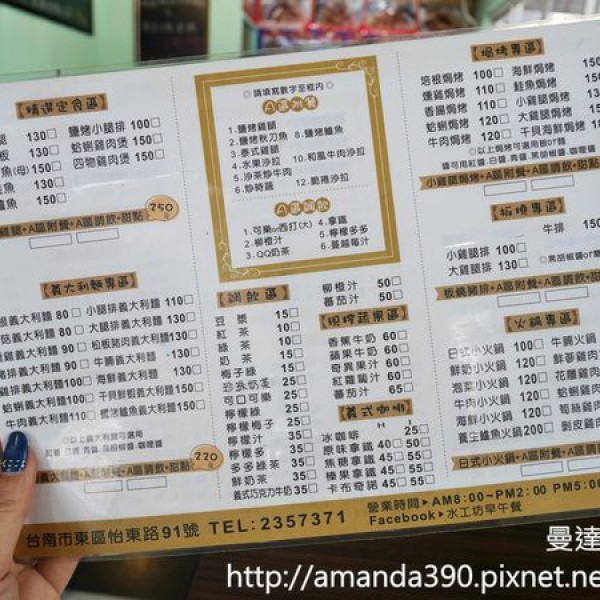 【精選定食區】
腿 130□ 鹽烤小腿排 100□
板 130□ 蛤蜊雞肉煲 150□
魚(母)150□ 四物雞肉煲 150□
魚 130□
魚 150□
A區附餐+A區調飲+甜點 250
◎請填寫數字至框內◎
A區附餐
1.鹽烤雞腿
2.鹽烤秋刀魚 8.鹽烤鱸魚
3.泰式雞腿
4.水果沙拉 10.和風牛肉沙拉
5.沙茶炒牛肉
6.炒時蔬 12.脆捲沙拉
A區調飲
1.可樂or西打(大) 4.拿鐵
2.柳橙汁 5.檸檬多多
3.QQ奶茶 6.蔓越莓汁
【焗烤專區】
培根焗烤 100□ 海鮮焗烤 150
燻雞焗烤 110□ 鮭魚焗烤 150
香腸焗烤 110□ 小雞腿焗烤 150
蛤蜊焗烤 120□ 大雞腿焗烤 150
牛肉焗烤 130□ 干貝海鮮焗烤 18
◎以上焗烤可選用飯or麵
醬可用紅醬.白醬.青醬.黑胡椒醬.咖哩醬
小雞腿焗烤+A區調飲+甜點
【板燒專區】
小雞腿排 100□ 牛排 150
大雞腿排 130□ ◎黑胡椒醬or
板燒豬排+A區附餐+A區調
【義大利麵專區】
義大利麵 80□ 小腿排義大利麵 110□
義大利麵 80□ 大腿排義大利麵 130□
義大利麵 90□ 松板豬肉義大利麵 130□
義大利麵 90□ 牛腩義大利麵 130□
義大利麵 100□ 海鮮義大利麵 130□
蛤蜊義大利麵 100□ 干貝鮮蝦義大利麵 150□
牛肉義大利麵 110□ 爐烤鱸魚義大利麵 150□
◎以上義大利麵可選用
A區附餐+A區調飲+甜點 220
【調飲區】
豆漿 15□
紅茶 10□
綠茶 10□
奶茶 15□
梅子綠 25□
珍珠奶茶 25□
可口可樂 25□
檸檬綠 25□
檸檬梅子 25□
檸檬汁 30□
檸檬多多 30□
多多綠茶 30□
奶茶 30□
義式巧克力牛奶 35□
柳橙汁 50□
蕃茄汁 50□
【現榨蔬果區】
香蕉牛奶 60□
蘋果牛奶 60□
奇異果汁 60□
紅蘿蔔汁 60□
蕃茄汁 65□
【義式咖啡】
H I
冰咖啡 25□
原味拿鐵 40□ 50□
焦糖拿鐵 45□ 55□
榛果拿鐵 45□ 55□
卡布奇諾 45□ 55□
【火鍋專區】
日式小火鍋 100□ 牛腩火鍋
鮮奶小火鍋 110□ 鮮蔘雞肉
泡菜小火鍋 120□ 花雕雞肉
牛肉小火鍋 120□ 蛤蜊雞肉
海鮮小火鍋 120□ 筍絲雞肉
養生鱸魚火鍋 200□ 剝皮雞肉
日式小火鍋+A區附餐+A區
台南市東區怡東路91號 TEL:2357371
營業時間▶AM8:00~PM2:00 PM5:00
Facebook▶水工坊早午餐
曼達
http://amanda390.pixnet.ne